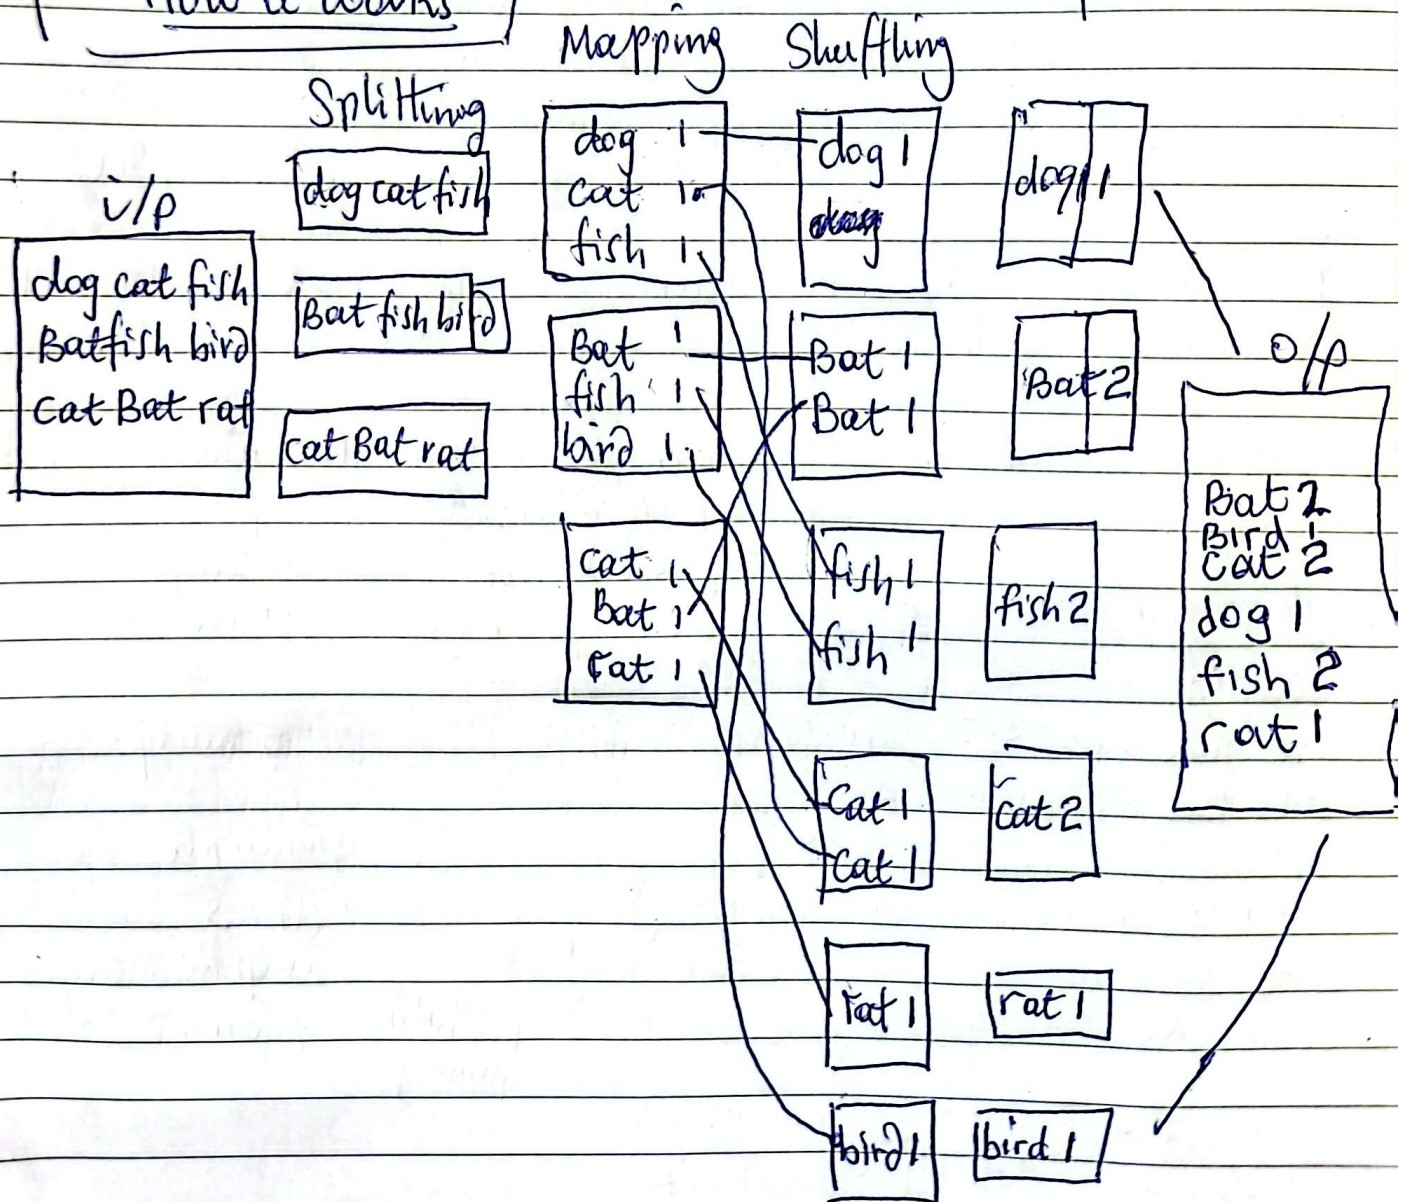 How it works
Mapping
Shuffling
Splitting
i/p
dog cat fish
Batfish bird
cat Bat rat
dog cat fish
Bat fish bird
cat Bat rat
dog 1
cat 1
fish 1
Bat 1
fish 1
bird 1
cat 1
Bat 1
rat 1
dog 1
Bat 1
Bat 1
fish 1
fish 1
Cat 1
Cat 1
rat 1
bird 1
dog 1
Bat 2
fish 2
cat 2
rat 1
bird 1
o/p
Bat 2
Bird 1
cat 2
dog 1
fish 2
rat 1